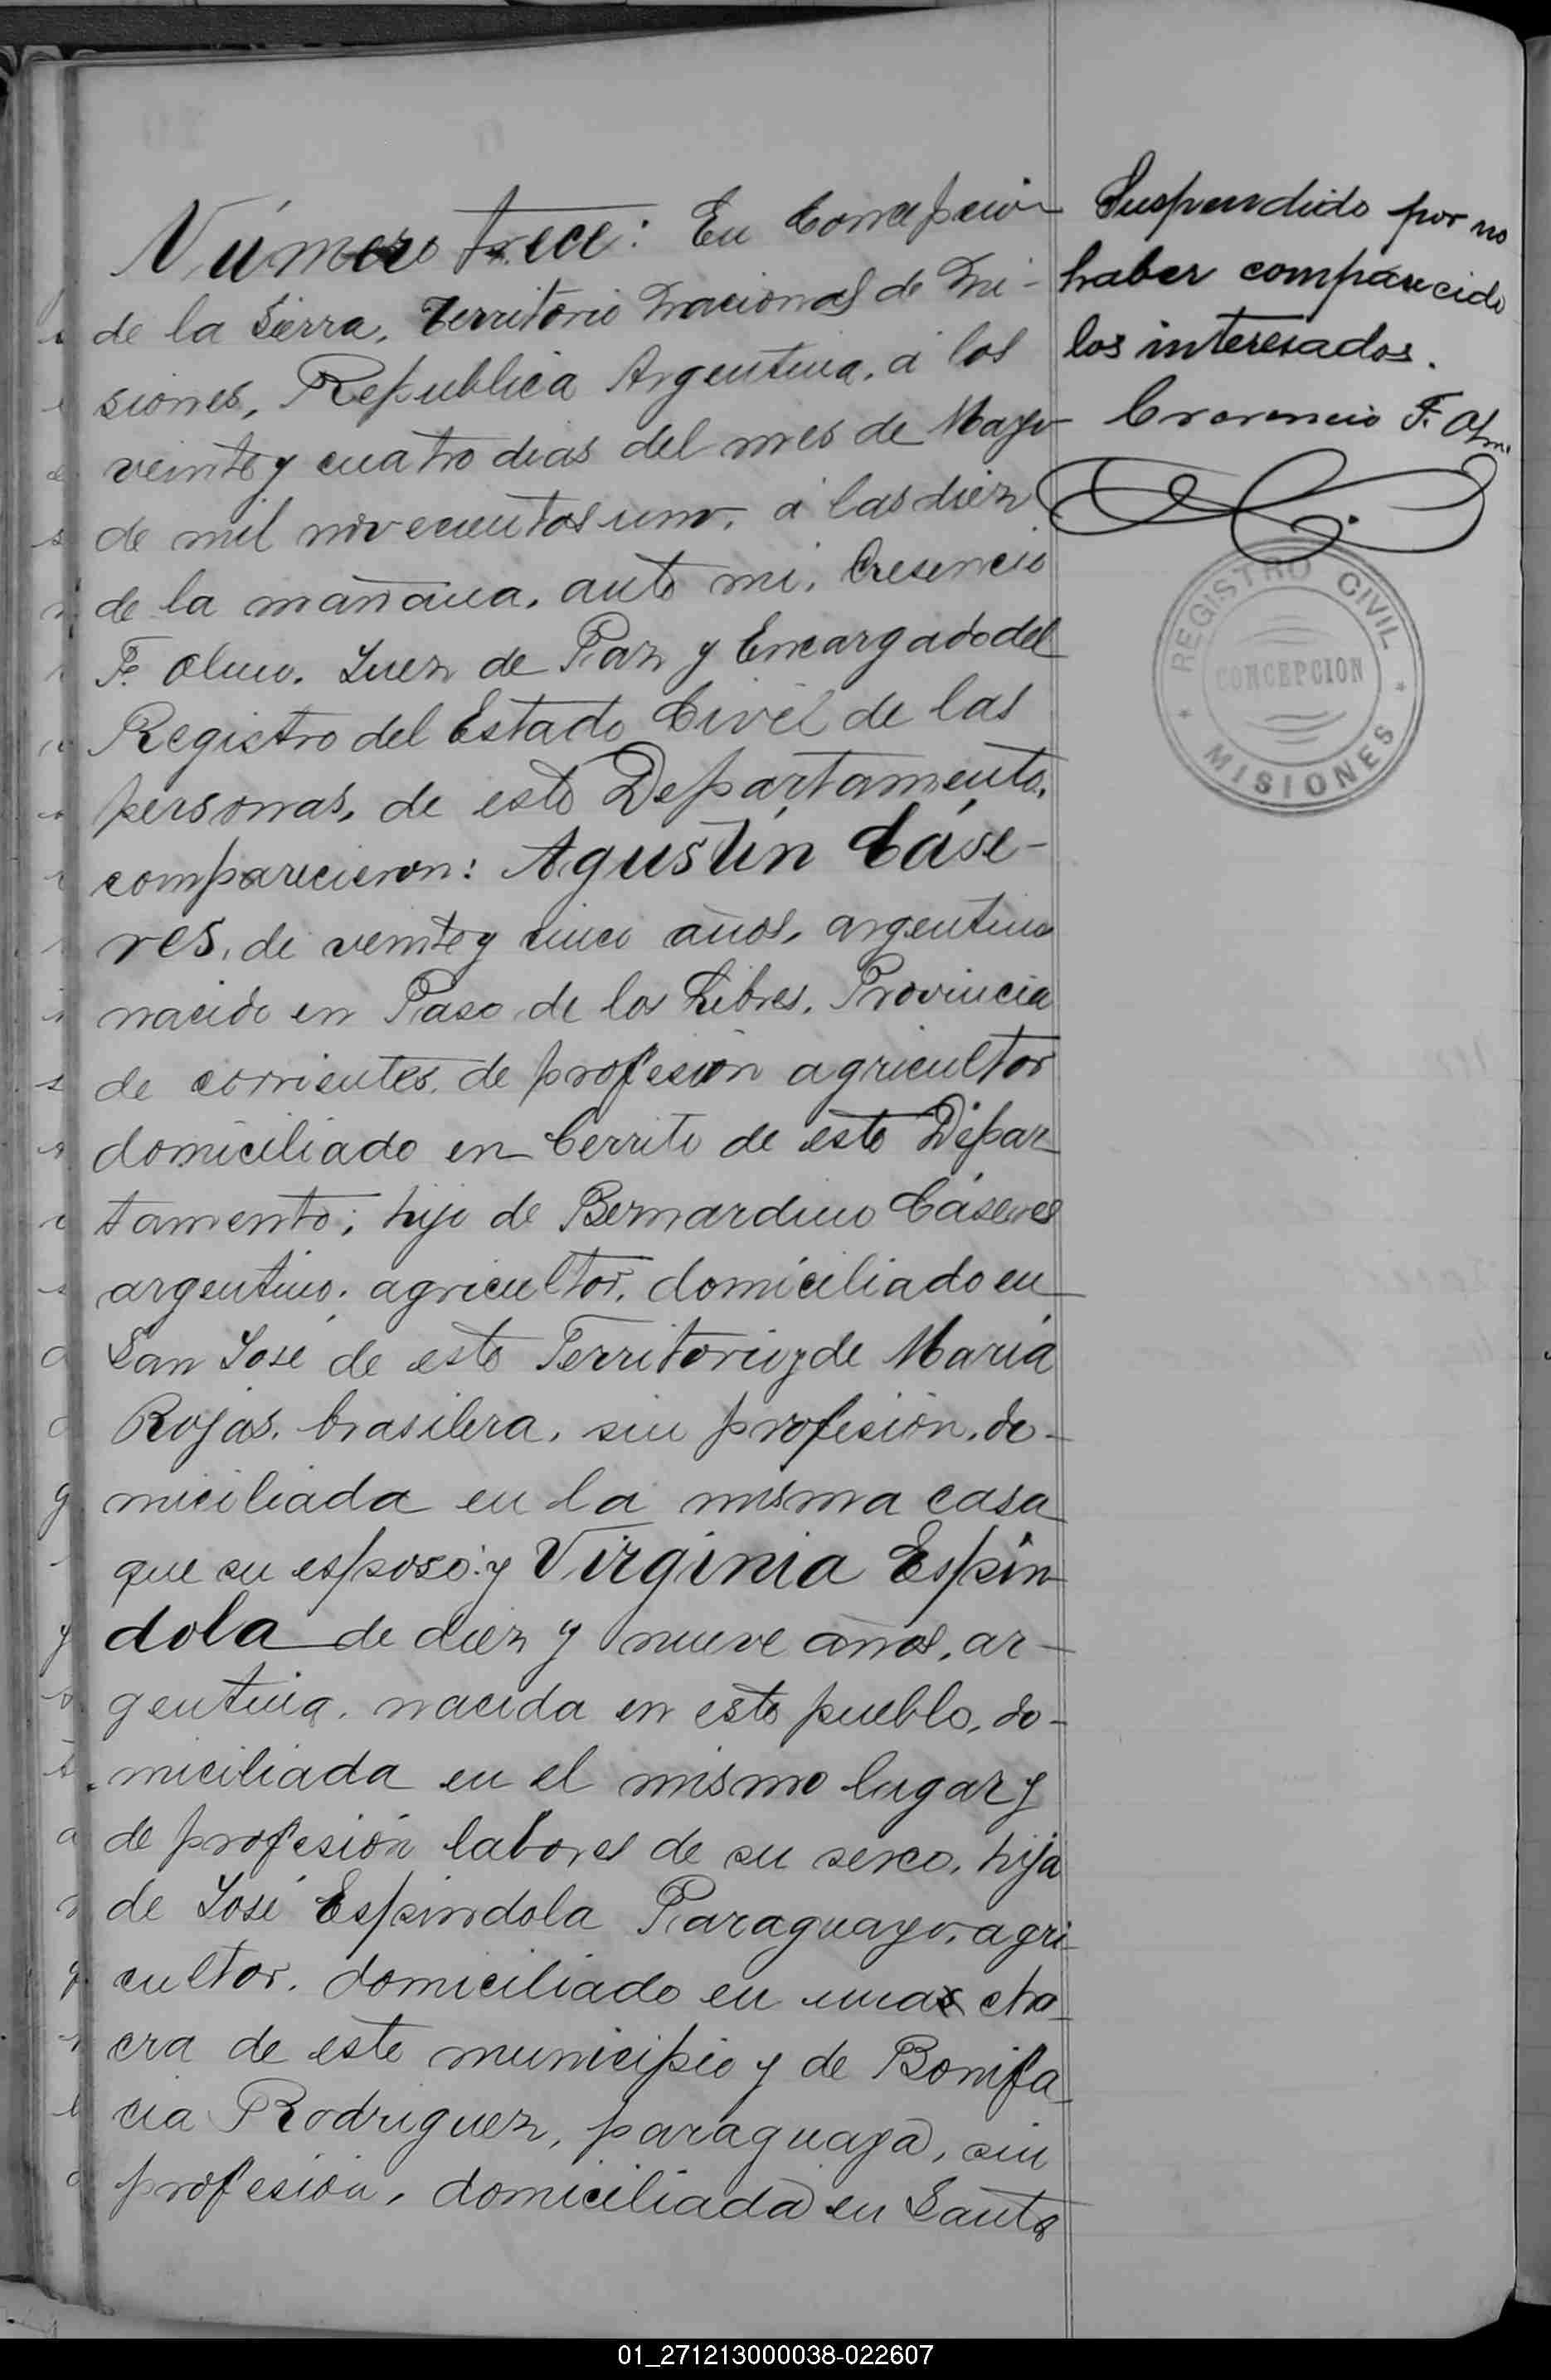 Número trece: En Concepcion
de la Sierra, Territorio Nacional de Mi-
siones, Republica Argentina, á los
veinte y cuatro dias del mes de Mayo
de mil novecientos uno, á las diez
de la mañana, ante mi, Cresencio
F. Olmo, Juez de Paz y Encargado del
Registro del Estado Civil de las
personas, de este Departamento,
comparecieron: Agustín Cáse-
res, de veinte y cinco años, argentino
nacido en Paso de los Libres, Provincia
de corrientes, de profesión agricultor
domiciliado en Cerrito de este Depar-
tamento; hijo de Bernardino Cáseres
argentino, agricultor, domiciliado en
San José de este Territorio y de María
Rojas, brasilera, sin profesión, do-
miciliada en la misma casa
que su esposo: y Virginia Espín
dola de diez y nueve años, ar-
gentina, nacida en este pueblo, do-
miciliada en el mismo lugar y
de profesión labores de su sexo, hija
de José Espindola Paraguayo, agri-
cultor, domiciliado en una cha-
cra de este municipio y de Bonifa-
cia Rodriguez, paraguaya, sin
profesión, domiciliada en Santa
Suspendido por no
haber comparecido
los interesados.
F. Olmo
REGISTRO CIVIL
CONCEPCION
* MISIONES *
01_271213000038-022607